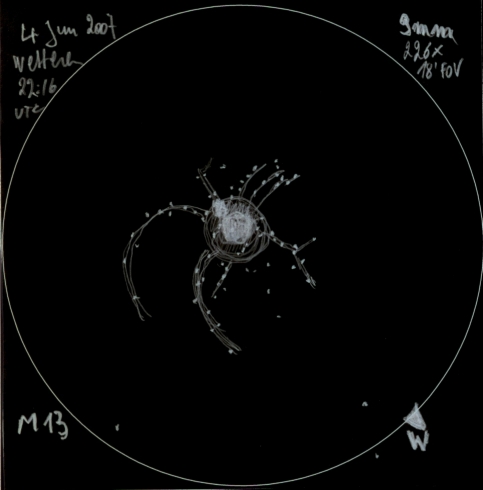 4 Jun 2007
Wetteren
22:16
UTC
9mm
226x
18' FOV
M13
W